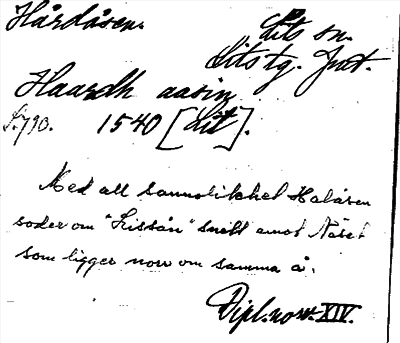 Hårdåsen.
Lits sn.
Lits tg. Jmt.
Haardh aasin
S.790. 1540 [Lit].
Med all sannolikhet Halåsen
söder om "Kissån" snett emot Näset
som ligger norr om samma å.
Dipl. norv. XIV.